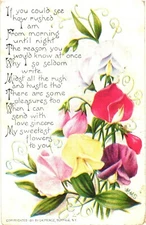 If you could see
how rushed
I am
From morning
until night
The reason you
would know at once
Why I so seldom
write.
Midst all the rush
and hustle tho'
There are some
pleasures too
When I can
send with
love sincere
My sweetest
flowers
to you
COPYRIGHTED